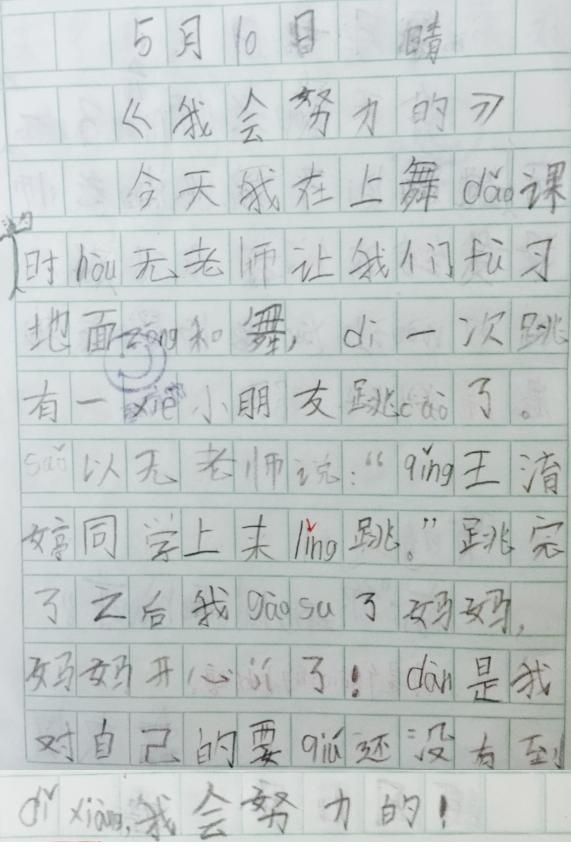 5月10日 晴
《我会努力的》
今天我在上舞dǎo课
时hòu无老师让我们fù习
地面zòng和舞，dì一次跳
有一xiē小朋友跳cuò了。
suǒ以无老师说：“qǐng王清
婷同学上来lǐng跳。”跳完
了之后我gàosu了妈妈，
妈妈开心jí了！dàn是我
对自己的要qiú还没有到
dǐ xiàng，我会努力的！